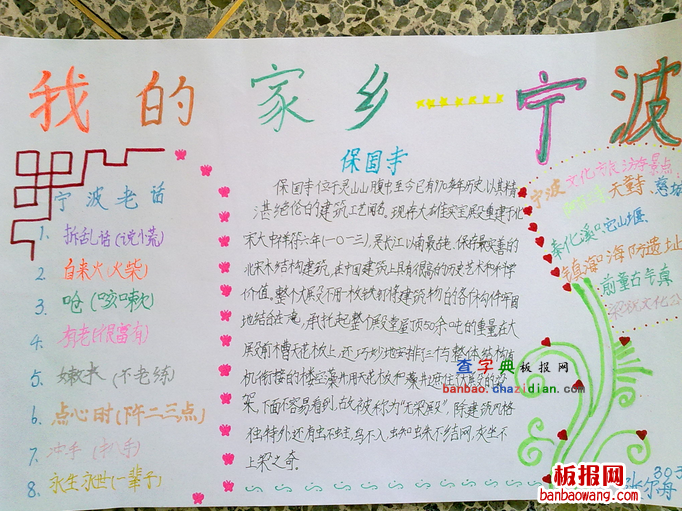 我的家乡——宁波
宁波老话
1. 拆乱话(说小荒)
2. 自来火(火柴)
3. 呛(咳嗽)
4. 有老(很富有)
5. 嫩头(不老练)
6. 点心时(下午二三点)
7. 冲手(扒手)
8. 永生永世(一辈子)
保国寺
保国寺位于灵山山腹中至今已有970多年历史,以其精
湛绝伦的建筑工艺闻名。现存大雄宝殿重建于北
宋大中祥符六年(一〇一三),是长江以南最老、保存最完善的
北宋木结构建筑,在中国建筑上具有很高的历史艺术和科学
价值,整个大殿不用一枚铁钉将建筑物的各个构件牢固
地结合在一起,承托起整个殿堂屋顶50余吨的重量在大
殿前槽天花板上,还巧妙地安排了三个与整体结构有
机衔接的楼空藻井用天花板和藻井遮住大殿的梁
架,下面不容易看到,故被称为"无梁殿",除建筑风格
独特外还有虫不蛀,鸟不入,蜘蛛不结网,灰尘不
上梁之奇。
宁波文化旅游景点
天童、慈城
奉化溪口它山堰
镇海口海防遗址
前童古镇
梁祝文化公
303
张尔舟
查字典板报网
banbao.chazidian.com
板报网
banbaowang.com